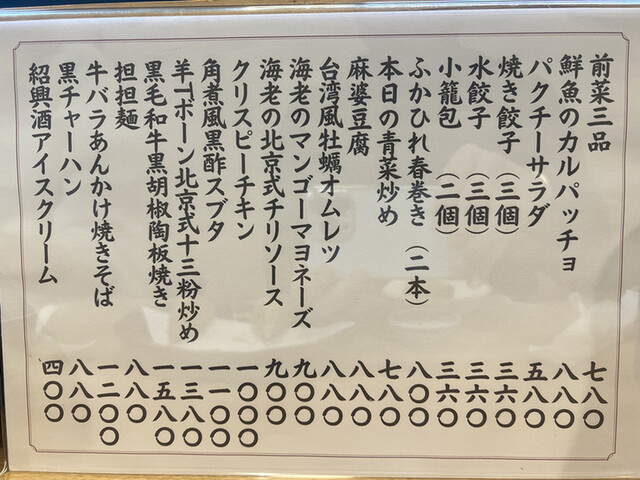 前菜三品 七八〇
鮮魚のカルパッチョ 八八〇
パクチーサラダ 五八〇
焼き餃子(三個) 三六〇
水餃子(三個) 三六〇
小籠包(二個) 三六〇
ふかひれ春巻き(二本) 八〇〇
本日の青菜炒め 七八〇
麻婆豆腐 八八〇
台湾風牡蠣オムレツ 八八〇
海老のマンゴーマヨネーズ 九〇〇
海老の北京式チリソース 九〇〇
クリスピーチキン 一〇〇〇
角煮風黒酢スブタ 一一〇〇
羊Tボーン北京式十三粉炒め 一三八〇
黒毛和牛黒胡椒陶板焼き 一五八〇
担担麺 八八〇
牛バラあんかけ焼きそば 一二〇〇
黒チャーハン 八八〇
紹興酒アイスクリーム 四〇〇